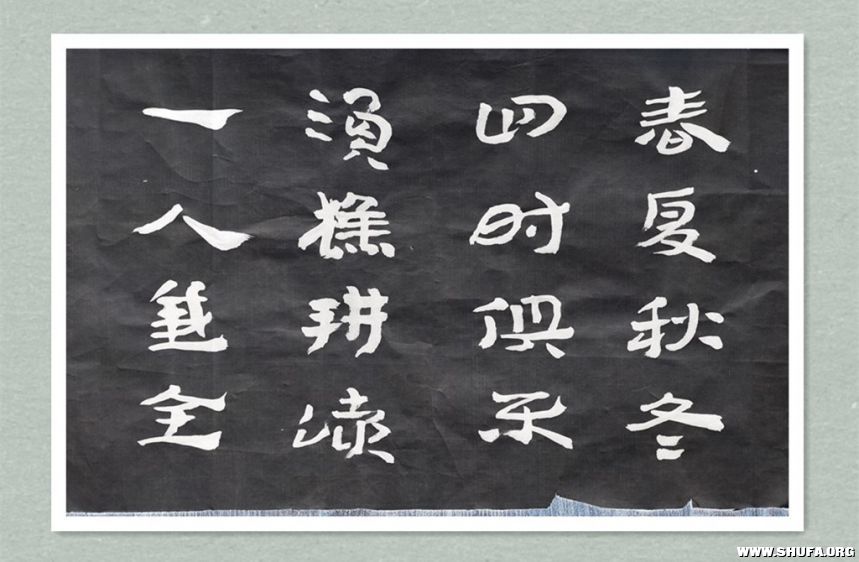 春夏秋冬
四时俱乐
渔樵耕读
一人全
WWW.SHUFA.ORG